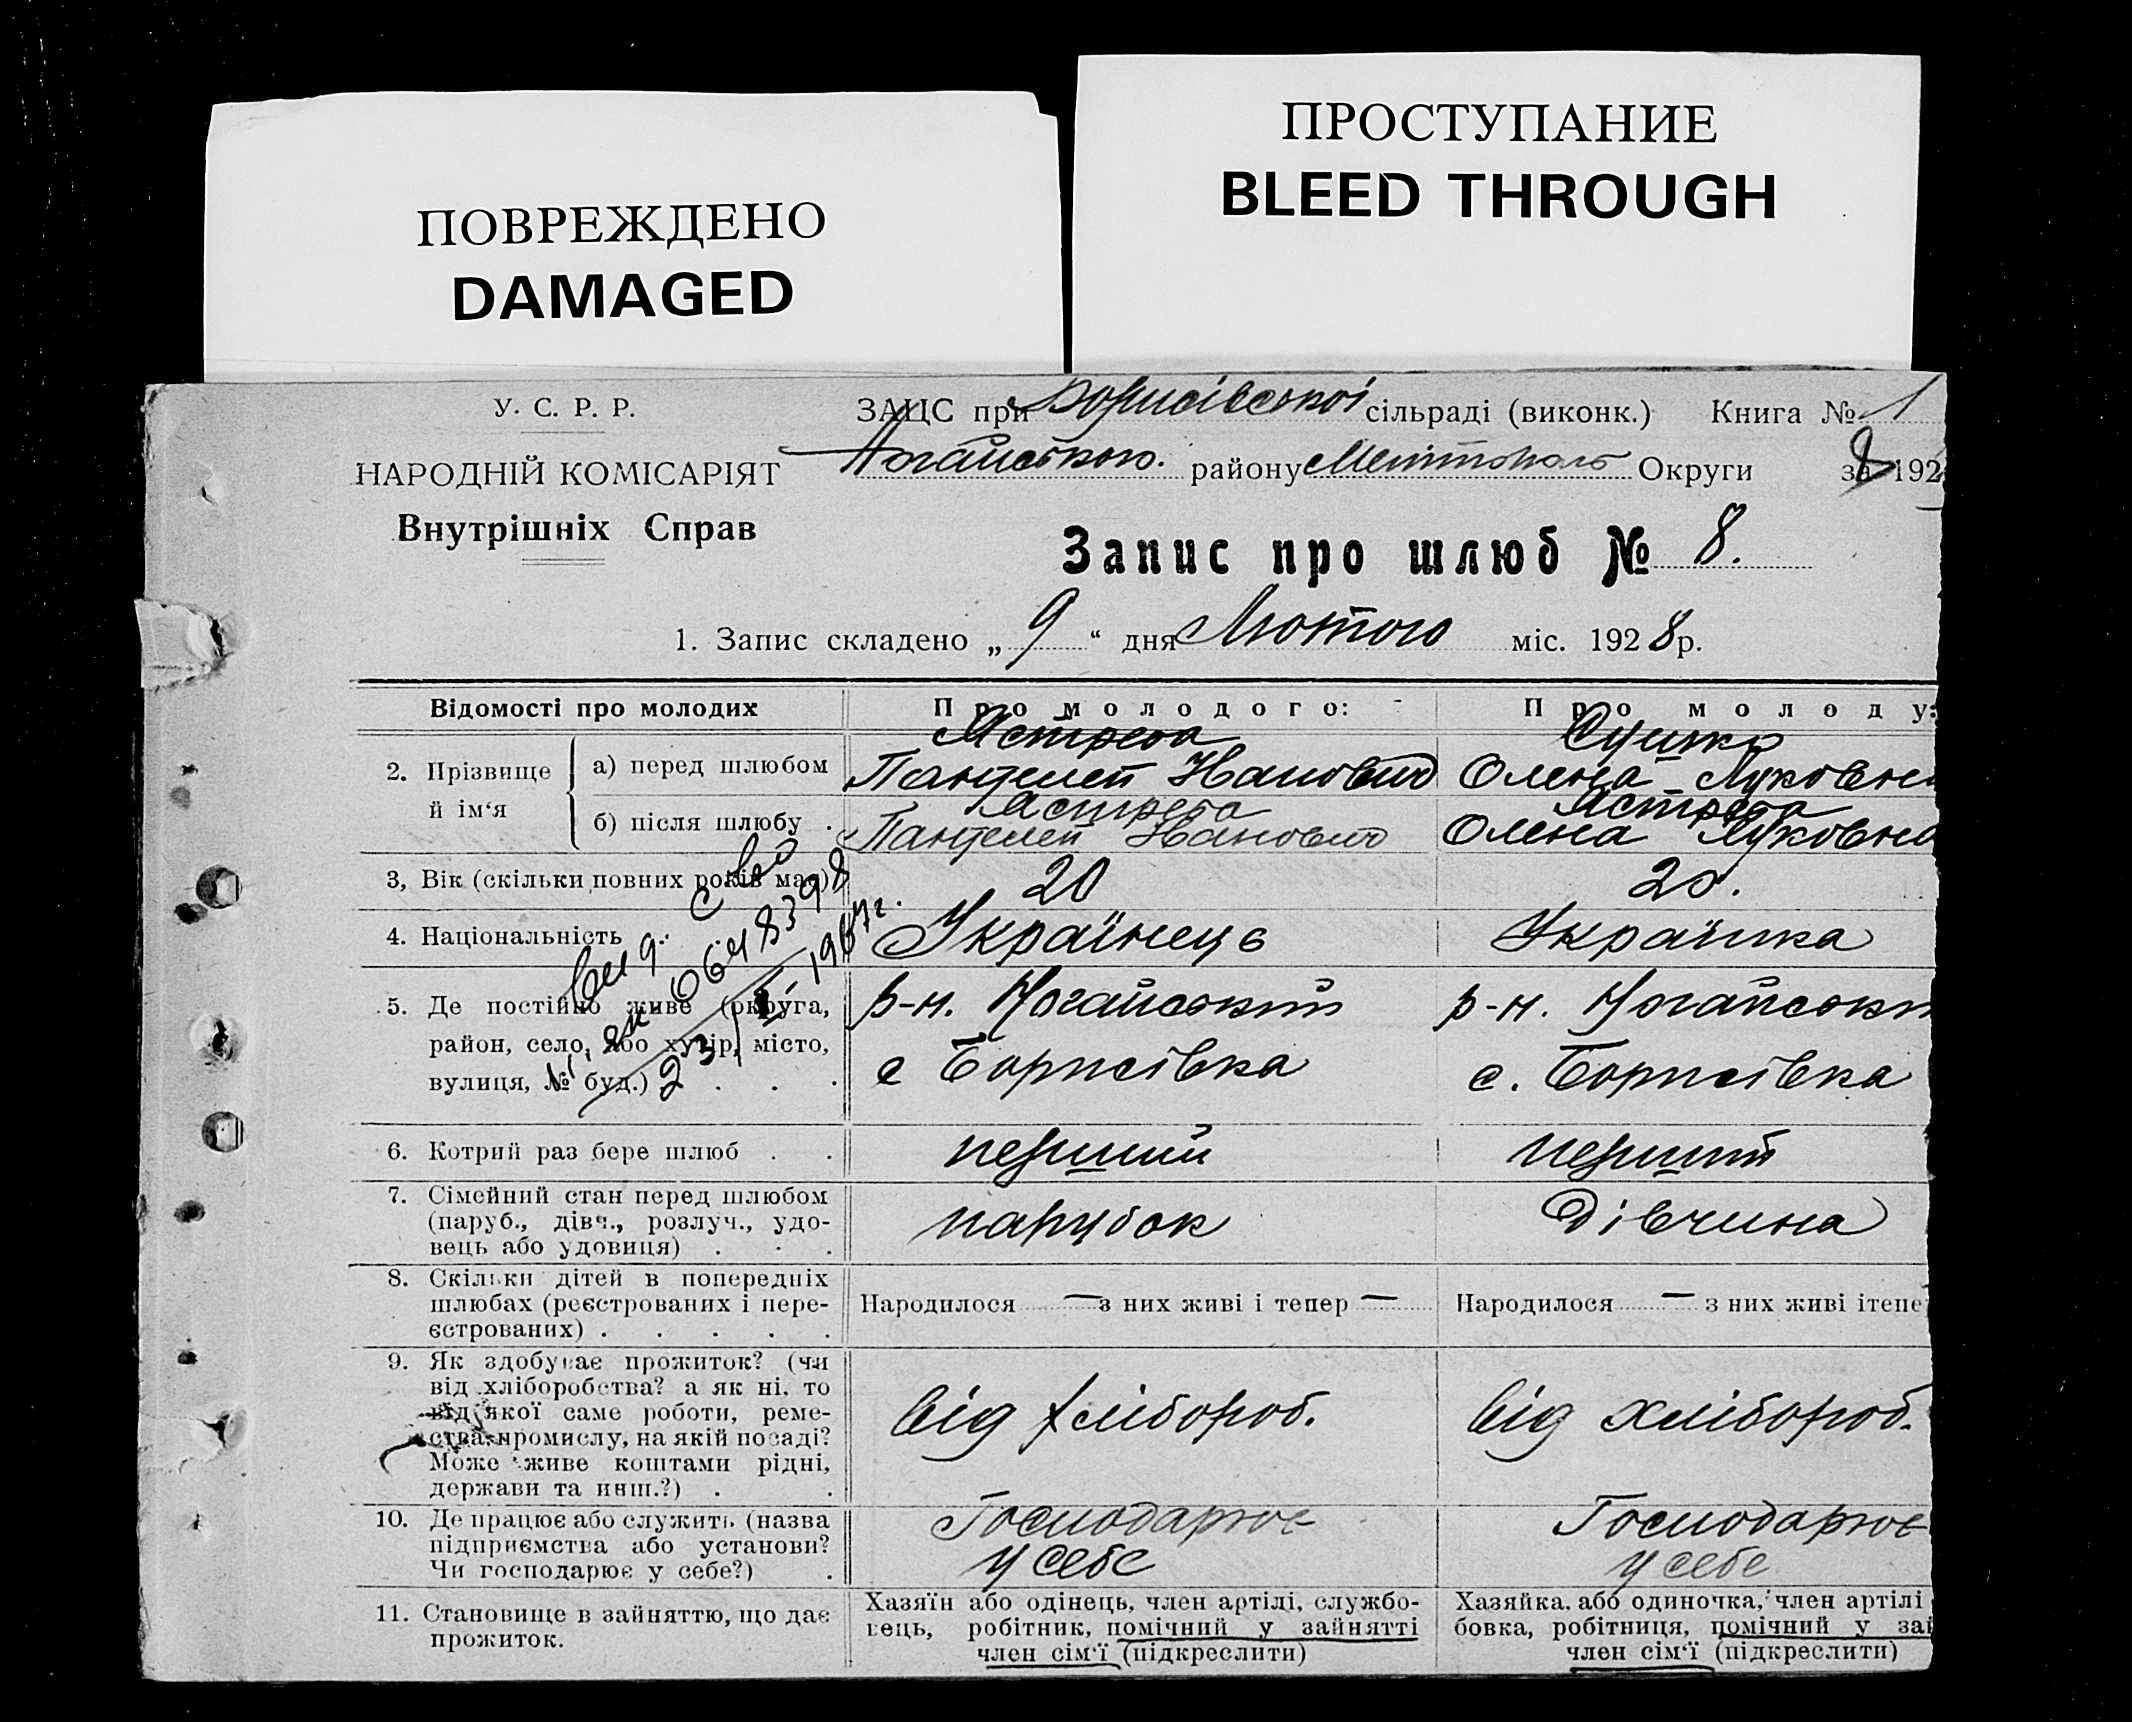 ПОВРЕЖДЕНО
DAMAGED
ПРОСТУПАНИЕ
BLEED THROUGH
У. С. Р. Р.
НАРОДНІЙ КОМІСАРІЯТ
Внутрішніх Справ
ЗАЦС при Борисівської сільраді (виконк.) Книга № 1
Ногайського. району Округи за 192
Запис про шлюб № 8.
1. Запис складено „ 9 “ дня Лютого міс. 1928 р.
Відомості про молодих Про молодого: Про молоду:
2. Прізвище й ім‘я
а) перед шлюбом Ястреба Пантелей Иванович Олена Луковна
б) після шлюбу . Ястреба Пантелей Иванович Ястреба Олена Луковна
3, Вік (скільки повних років має) 20 20.
4. Національність . . Українець Українка
5. Де постійно живе (округа, р-н. Ногайський р-н. Ногайськи
район, село, або хутір, місто, с Борисівка с. Борисівка
вулиця, № буд.) . . .
выд. с во
№ 0648398
23/ 1967г.
6. Котрий раз бере шлюб . . перший перший
7. Сімейний стан перед шлюбом
(паруб., дівч., розлуч., удо- парубок Дівчина
вець або удовиця) . . .
8. Скільки дітей в попередніх
шлюбах (реєстрованих і пере- Народилося — з них живі і тепер — Народилося — з них живі і тепе
єстрованих) . . . . .
9. Як здобуває прожиток? (чи
від хліборобства? а як ні, то
від якої саме роботи, реме- від хлібороб. від хлібороб.
ства, промислу, на якій посаді?
Може живе коштами рідні,
держави та инш.?) . .
10. Де працює або служить (назва Господарює Господарює
підприємства або установи? у себе у себе
Чи господарює у себе?) .
11. Становище в зайняттю, що дає
прожиток.
Хазяїн або одінець, член артілі, службо-
вець, робітник, помічний у зайнятті
член сім‘ї (підкреслити)
Хазяйка, або одиночка, член артілі
бовка, робітниця, помічний у зай
член сім‘ї (підкреслити)